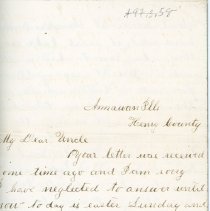 Annawan Ills
Henry County
My Dear Uncle
Your letter was received
some time ago and I am sorry
I have neglected to answer until
now to day is easter Sunday and